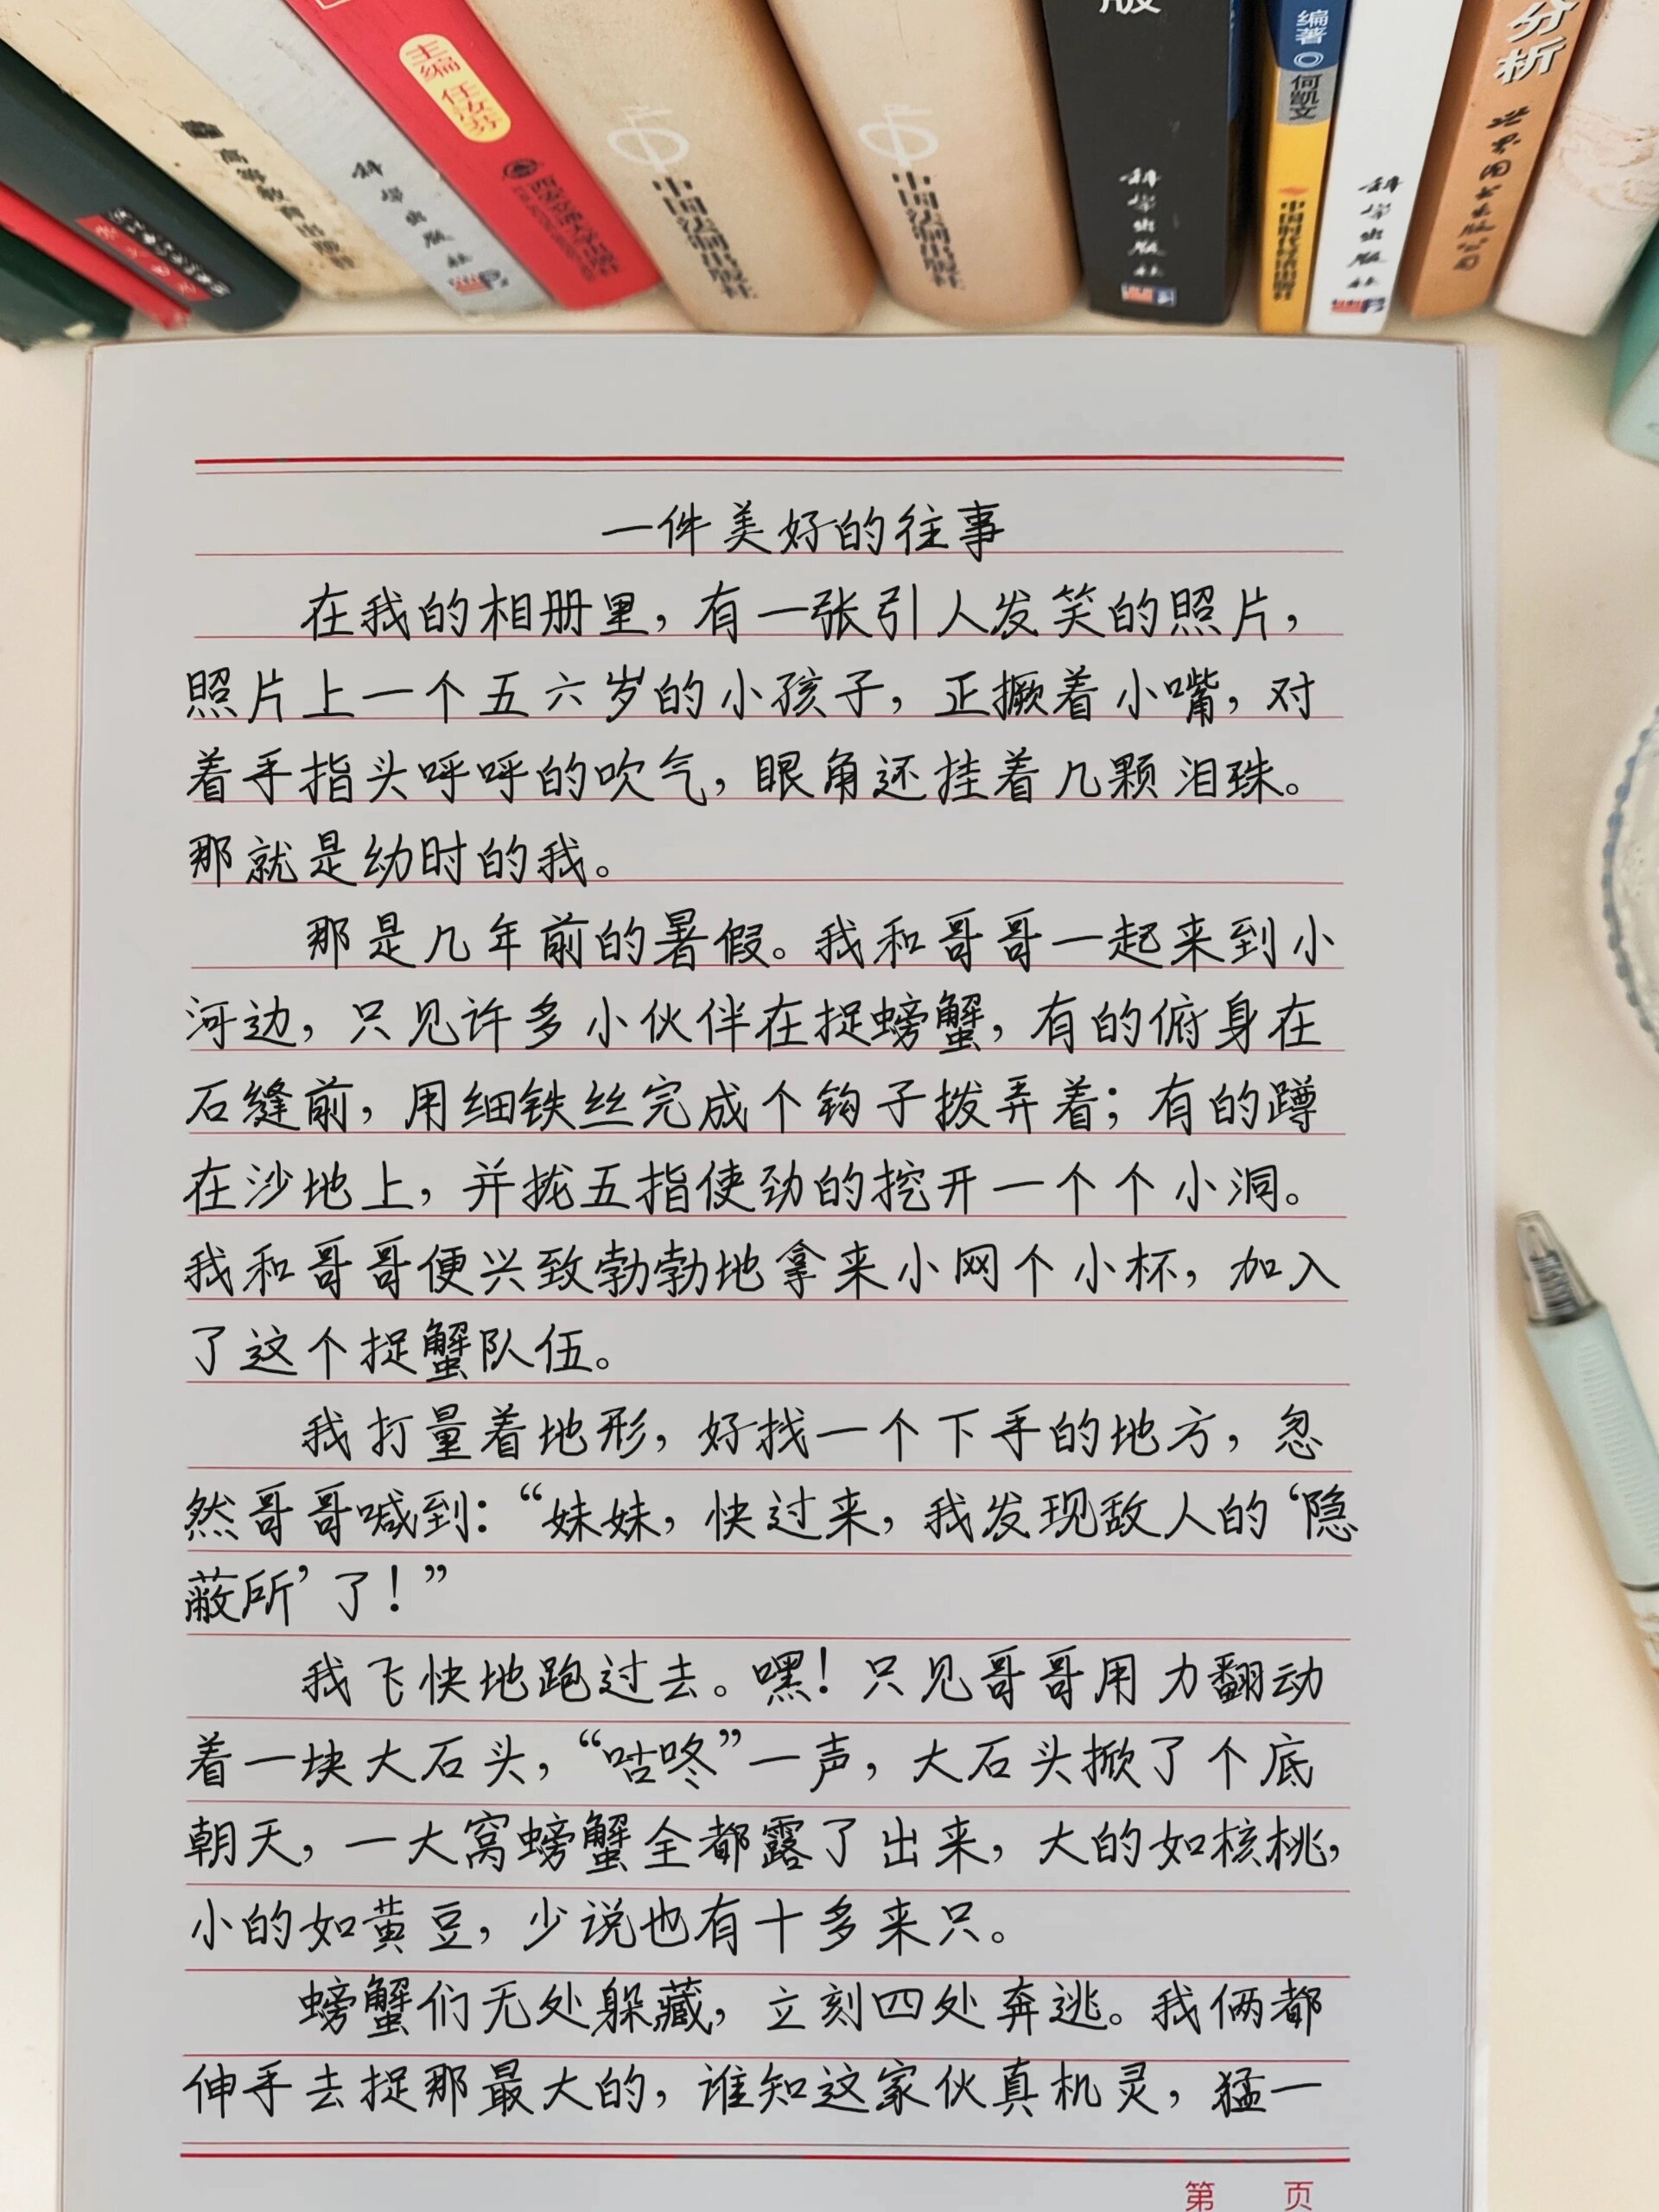 版
编著 何凯文
分析
主编 任汝芬
高等教育出版社
科学出版社
中国法制出版社
中国法制出版社
科学出版社
中国时代经济出版社
科学出版社
世界图书出版公司
一件美好的往事
在我的相册里，有一张引人发笑的照片，
照片上一个五六岁的小孩子，正撅着小嘴，对
着手指头呼呼的吹气，眼角还挂着几颗泪珠。
那就是幼时的我。
那是几年前的暑假。我和哥哥一起来到小
河边，只见许多小伙伴在捉螃蟹，有的俯身在
石缝前，用细铁丝完成个钩子拨弄着；有的蹲
在沙地上，并拢五指使劲的挖开一个个小洞。
我和哥哥便兴致勃勃地拿来小网个小杯，加入
了这个捉蟹队伍。
我打量着地形，好找一个下手的地方，忽
然哥哥喊到：“妹妹，快过来，我发现敌人的‘隐
蔽所’了！”
我飞快地跑过去。嘿！只见哥哥用力翻动
着一块大石头，“咕咚”一声，大石头掀了个底
朝天，一大窝螃蟹全都露了出来，大的如核桃，
小的如黄豆，少说也有十多来只。
螃蟹们无处躲藏，立刻四处奔逃。我俩都
伸手去捉那最大的，谁知这家伙真机灵，猛一
第 页